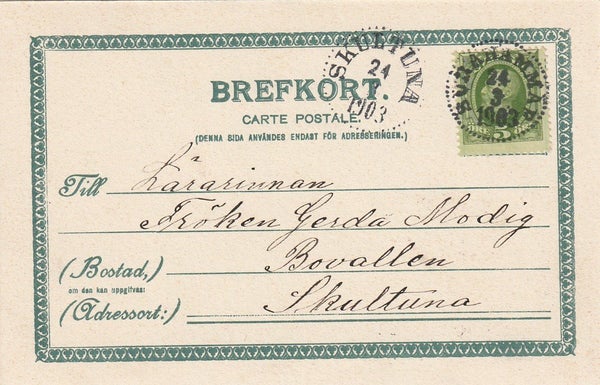 SKULTUNA
24
1903
SURAHAMMAR
24
3
1903
5
BREFKORT.
CARTE POSTALE.
(DENNA SIDA ANVÄNDES ENDAST FÖR ADRESSERINGEN.)
Till Lärarinnan
Fröken Gerda Modig
(Bostad,) Bovallen
om den kan uppgifvas:
(Adressort:) Skultuna